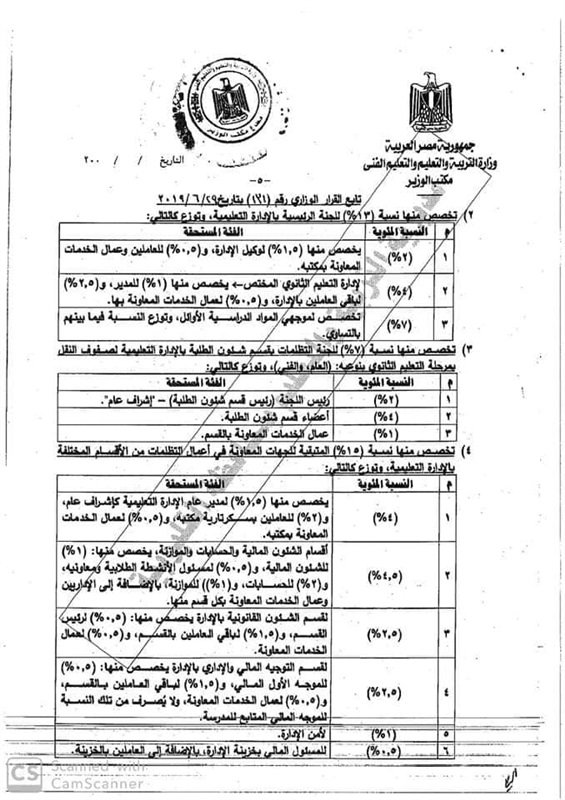 جمهورية مصر العربية
وزارة التربية والتعليم والتعليم الفنى
مكتب الوزير
التاريخ / / ٢٠٠
-٥-
تابع القرار الوزاري رقم (١٢١) بتاريخ ٢٠١٩/٦/٢٩
٢) تخصص منها نسبة (١٣%) للجنة الرئيسية بالإدارة التعليمية، وتوزع كالتالي:
م النسبة المئوية الفئة المستحقة
١ (٢%) يخصص منها (١,٥%) لوكيل الإدارة، و(٠,٥%) للعاملين وعمال الخدمات
المعاونة بمكتبه.
٢ (٤%) لإدارة التعليم الثانوي المختص← يخصص منها (١%) للمدير، و(٢,٥%)
لباقي العاملين بالإدارة، و(٠,٥%) لعمال الخدمات المعاونة بها.
٣ (٧%) تخصص لموجهي المواد الدراسية الأوائل، وتوزع النسبة فيما بينهم
بالتساوي.
٣) تخصص منها نسبة (٧%) للجنة التظلمات بقسم شئون الطلبة بالإدارة التعليمية لصفوف النقل
بمرحلة التعليم الثانوي بنوعيه: (العام، والفني)، وتوزع كالتالي:
م النسبة المئوية الفئة المستحقة
١ (٢%) رئيس اللجنة (رئيس قسم شئون الطلبة) – "إشراف عام".
٢ (٤%) أعضاء قسم شئون الطلبة.
٣ (١%) عمال الخدمات المعاونة بالقسم.
٤) تخصص منها نسبة (١٥%) المتبقية للجهات المعاونة في أعمال التظلمات من الأقسام المختلفة
بالإدارة التعليمية، وتوزع كالتالي:
م النسبة المئوية الفئة المستحقة
١ (٤%) يخصص منها (١,٥%) لمدير عام الإدارة التعليمية كإشراف عام،
و(٢%) للعاملين بسكرتارية مكتبه، و(٠,٥%) لعمال الخدمات
المعاونة بمكتبه.
٢ (٤,٥%) أقسام الشئون المالية والحسابات والموازنة، يخصص منها: (١%)
للشئون المالية، و(٠,٥%) لمسئول الأنشطة الطلابية ومعاونيه،
و(٢%) للحسابات، و(١%)) للموازنة، بالإضافة إلى الإداريين
وعمال الخدمات المعاونة بكل قسم منها.
٣ (٢,٥%) لقسم الشئون القانونية بالإدارة يخصص منها: (٠,٥%) لرئيس
القسم، و(١,٥%) لباقي العاملين بالقسم، و(٠,٥%) لعمال
الخدمات المعاونة.
٤ (٢,٥%) لقسم التوجيه المالي والإداري بالإدارة يخصص منها: (٠,٥%)
للموجه الأول المالي، و(١,٥%) لباقي العاملين بالقسم،
و(٠,٥%) لعمال الخدمات المعاونة، ولا يُصرف من تلك النسبة
للموجه المالي المتابع للمدرسة.
٥ (١%) لأمن الإدارة.
٦ (٠,٥%) للمسئول المالي بخزينة الإدارة، بالإضافة إلى العاملين بالخزينة.
CS Scanned with
CamScanner